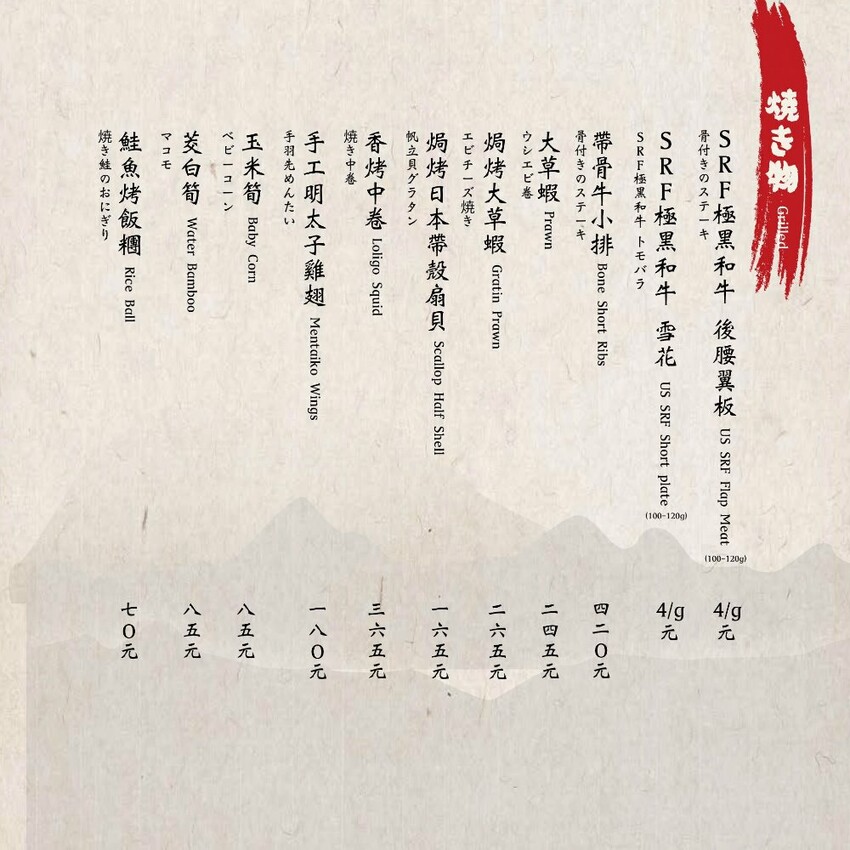 焼き物 Grilled
SRF極黒和牛 後腰翼板 US SRF Flap Meat (100-120g)
4/g元
骨付きのステーキ
SRF極黒和牛 雪花 US SRF Short plate (100-120g)
4/g元
SRF極黒和牛 トモバラ
帶骨牛小排 Bone Short Ribs
四二0元
骨付きのステーキ
大草蝦 Prawn
二四五元
ウシエビ巻
焗烤大草蝦 Gratin Prawn
二六五元
エビチーズ焼き
焗烤日本帶殼扇貝 Scallop Half Shell
一六五元
帆立貝グラタン
香烤中卷 Loligo Squid
三六五元
焼き中巻
手工明太子雞翅 Mentaiko Wings
一八0元
手羽先めんたい
玉米筍 Baby Corn
八五元
ベビーコーン
茭白筍 Water Bamboo
八五元
マコモ
鮭魚烤飯糰 Rice Ball
七0元
焼き鮭のおにぎり